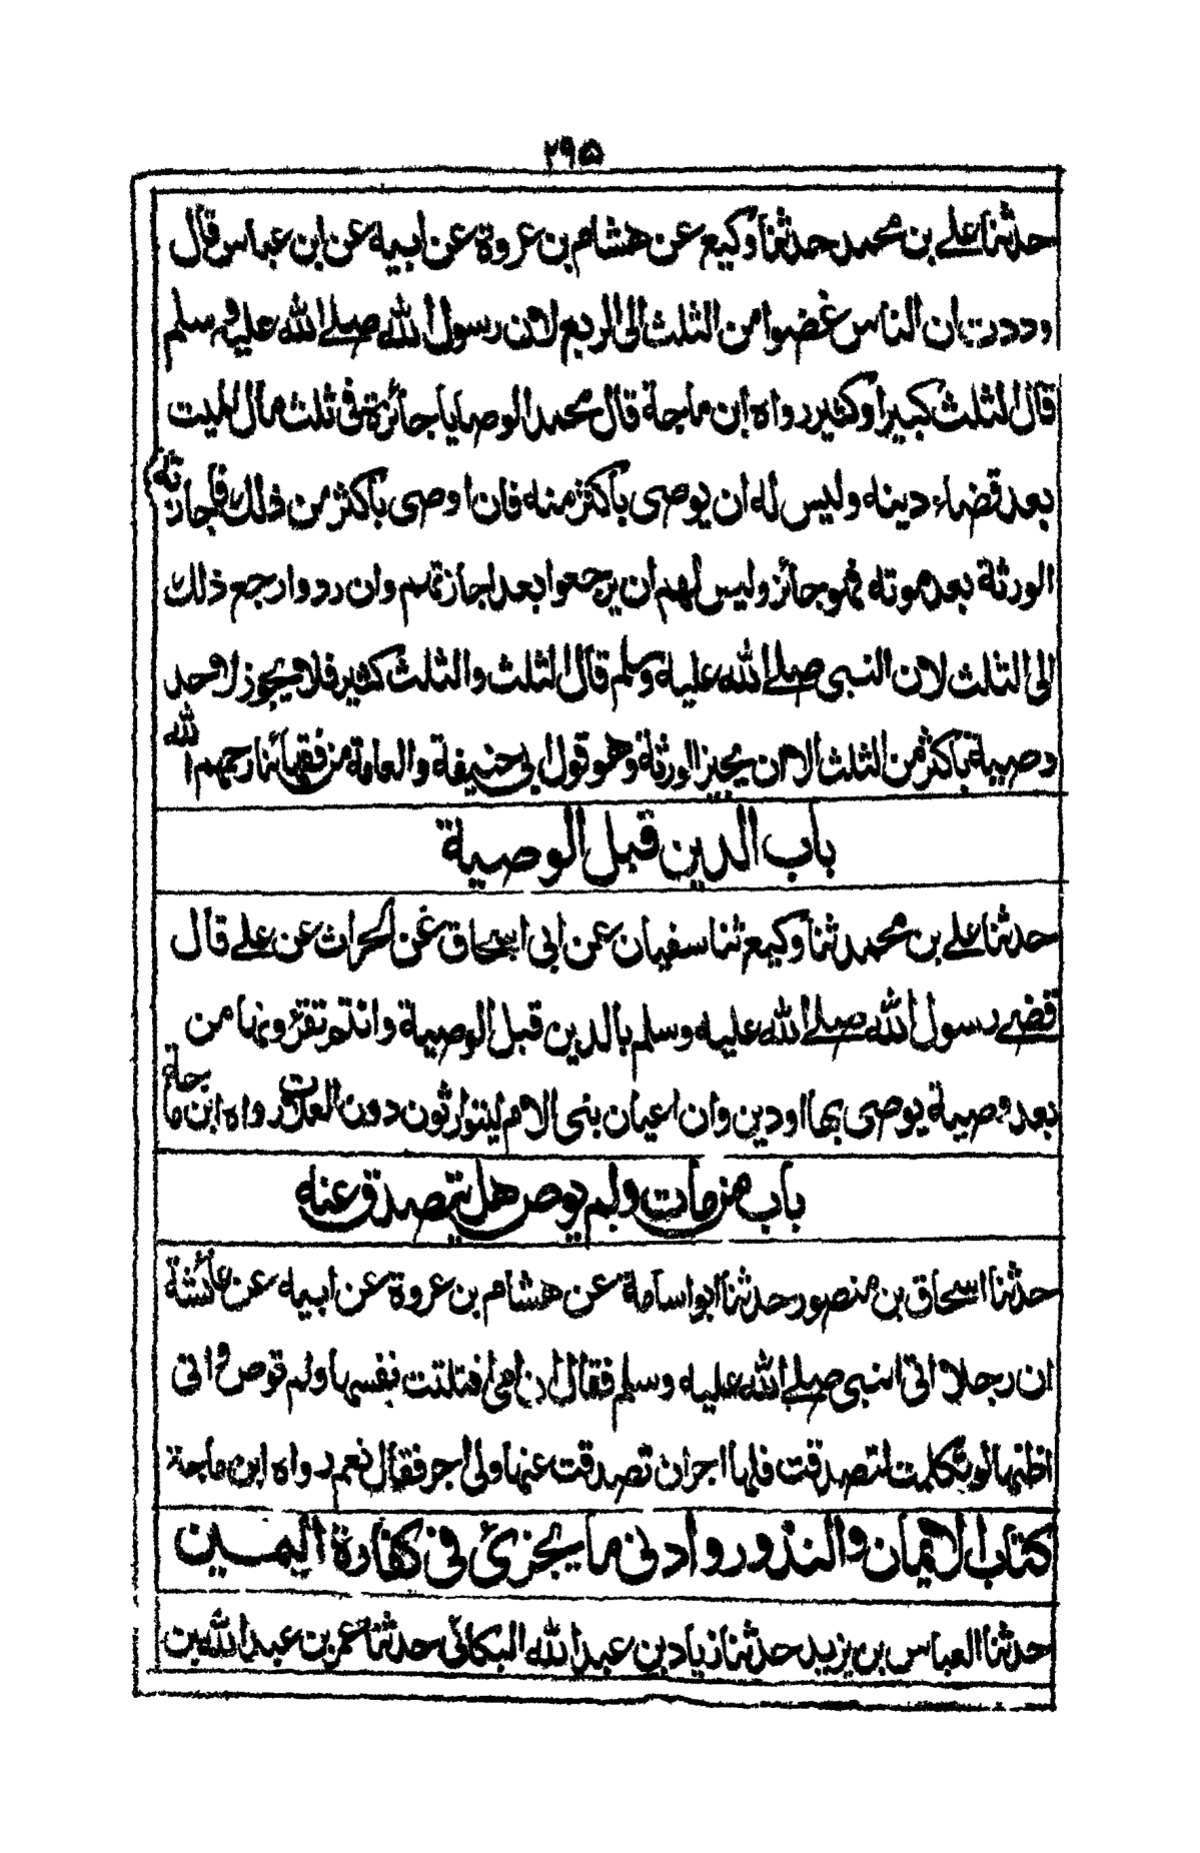 ٢٩٥
حدثنا علے بن محمد حدثنا وكيع عن هشام بن عروة عن ابيه عن ابن عباس قال
وددت ان الناس غضوا من الثلث الى الربع لان رسول الله صلے الله عليه وسلم
قال الثلث كبير او كثير رواه ابن ماجة قال محمد الوصايا جائزة فى ثلث مال الميت
بعد قضاء دينه وليس له ان يوصى باكثر منه فان اوصى باكثر من ذلك فاجازته
الورثة بعد موته فهو جائز وليس لهم ان يرجعوا بعد اجازتهم وان ردوا رجع ذلك
الى الثلث لان النبى صلے الله عليه وسلم قال الثلث والثلث كثير فلا يجوز لاحد
وصية باكثر من الثلث الا ان يجيز الورثة وهو قول ابى حنيفة والعامة من فقهائنا رحمهم الله
باب الدين قبل الوصية
حدثنا علے بن محمد ثنا وكيع ثنا سفيان عن ابى اسحاق عن الحراث عن علے قال
قضے رسول الله صلے الله عليه وسلم بالدين قبل الوصية وانتم تقرؤنها من
بعد وصية يوصى بها او دين وان اعيان بنى الام ليتوارثون دون العلات رواه ابن ماجة
باب من مات ولم يوص هل يتصدق عنه
حدثنا اسحاق بن منصور حدثنا ابو اسامة عن هشام بن عروة عن ابيه عن عائشة
ان رجلا اتى النبى صلے الله عليه وسلم فقال ان امى افتلتت نفسها ولم توص وانى
اظنها لو تكلمت لتصدقت فلها اجر ان تصدقت عنها ولى اجر فقال نعم رواه ابن ماجة
كتاب الايمان والنذور وادنى ما يجزئ فى كفارة اليمين
حدثنا العباس بن يزيد حدثنا زياد بن عبد الله البكائى حدثنا عمر بن عبد الله بن